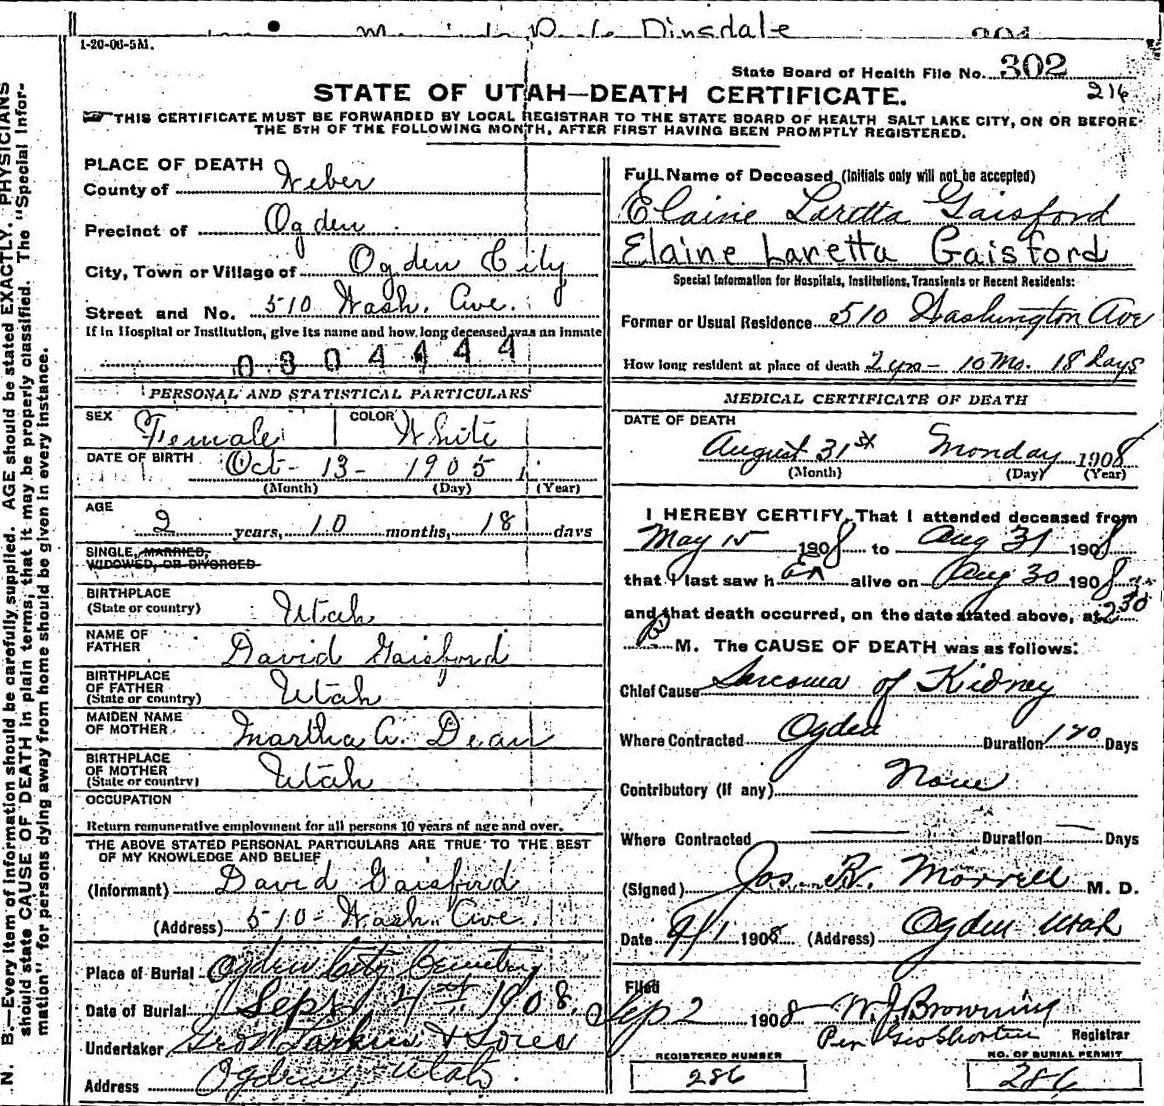 Dinsdale
1-20-06-5M.
State Board of Health File No. 302
216
STATE OF UTAH—DEATH CERTIFICATE.
THIS CERTIFICATE MUST BE FORWARDED BY LOCAL REGISTRAR TO THE STATE BOARD OF HEALTH SALT LAKE CITY, ON OR BEFORE
THE 5TH OF THE FOLLOWING MONTH, AFTER FIRST HAVING BEEN PROMPTLY REGISTERED.
N. B.—Every item of information should be carefully supplied. AGE should be stated EXACTLY. PHYSICIANS
should state CAUSE OF DEATH in plain terms, that it may be properly classified. The "Special Infor-
mation" for persons dying away from home should be given in every instance.
PLACE OF DEATH
County of Weber
Precinct of Ogden
City, Town or Village of Ogden City
Street and No. 510 Wash. Ave.
If in Hospital or Institution, give its name and how long deceased was an inmate
0304444
PERSONAL AND STATISTICAL PARTICULARS
SEX Female COLOR White
DATE OF BIRTH Oct- 13- 1905
(Month) (Day) (Year)
AGE
2 years, 10 months, 18 days
SINGLE, MARRIED,
WIDOWED, OR DIVORCED
BIRTHPLACE
(State or country) Utah
NAME OF
FATHER David Gaisford
BIRTHPLACE
OF FATHER
(State or country) Utah
MAIDEN NAME
OF MOTHER Martha A. Dean
BIRTHPLACE
OF MOTHER
(State or country) Utah
OCCUPATION
Return remunerative employment for all persons 10 years of age and over.
THE ABOVE STATED PERSONAL PARTICULARS ARE TRUE TO THE BEST
OF MY KNOWLEDGE AND BELIEF
(Informant) David Gaisford
(Address) 510- Wash. Ave.
Place of Burial Ogden City Cemetery
Date of Burial Sept 4th 1908
Undertaker Geo W Larkin & Sons
Address Ogden, Utah.
Full Name of Deceased (Initials only will not be accepted)
Elaine Laretta Gaisford
Elaine Laretta Gaisford
Special Information for Hospitals, Institutions, Transients or Recent Residents:
Former or Usual Residence 510 Washington Ave
How long resident at place of death 2 yrs- 10 Mo. 18 Days
MEDICAL CERTIFICATE OF DEATH
DATE OF DEATH
August 31st Monday 1908
(Month) (Day) (Year)
I HEREBY CERTIFY, That I attended deceased from
May 15 1908 to Aug 31 1908
that I last saw her alive on Aug 30 1908
and that death occurred, on the date stated above, at 2 30
P. M. The CAUSE OF DEATH was as follows:
Chief Cause Sarcoma of Kidney
Where Contracted Ogden Duration 120 Days
Contributory (if any) None
Where Contracted Duration Days
(Signed) Jos. R. Morrell M. D.
Date 9/1 1908 (Address) Ogden Utah
Filed
Sep 2 1908 W. J. Browning
Per Geo Shorten Registrar
REGISTERED NUMBER
286
NO. OF BURIAL PERMIT
286